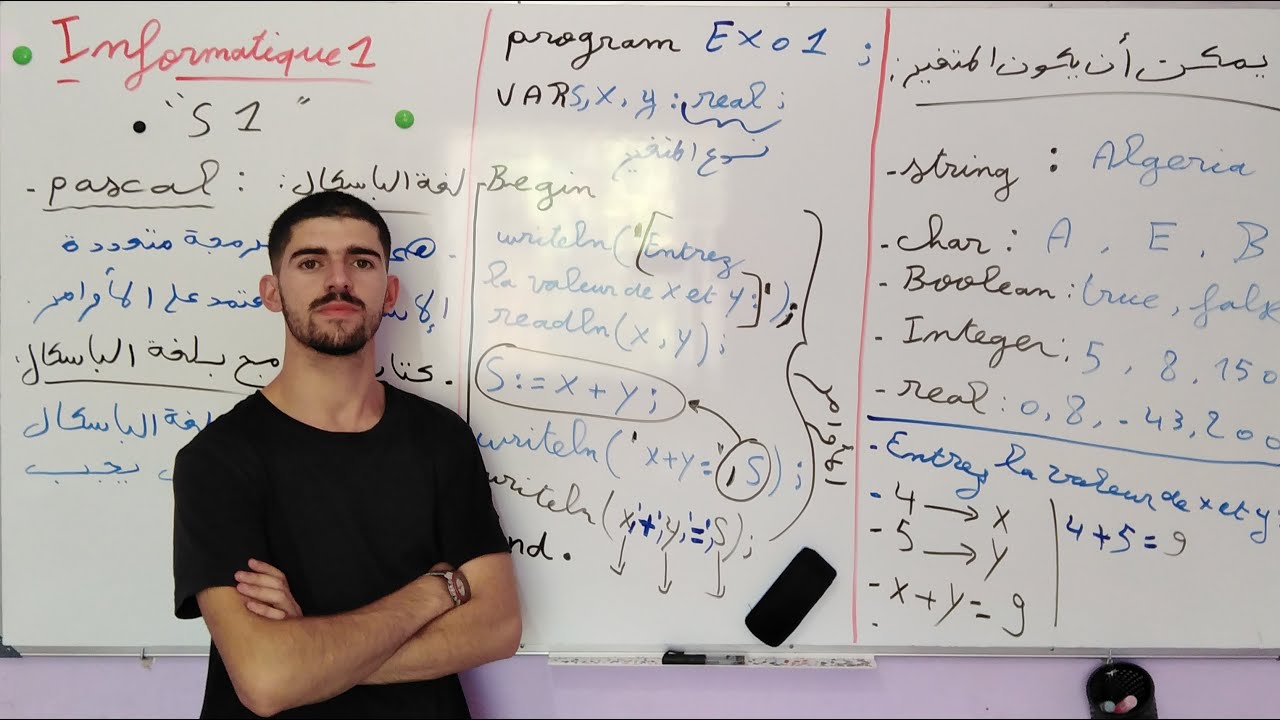 Informatique 1
"S1"
- pascal : لغة الباسكال :
برمجة متعددة
تعتمد على الأوامر.
بلغة الباسكال:
لغة الباسكال
يجب
program EXo1 ;
VAR S, X, y : real ;
نوع المتغير
Begin
writeln('[Entrez
la valeur de x et y :]');
readln(x, y);
S := x + y ;
writeln('x+y=', S);
writeln(x,'+',y,'=',S);
nd.
الأوامر
يمكن أن يكون المتغير :
- string : Algeria
- char : A , E , B
- Boolean : true, fals
- Integer : 5 , 8 , 150
- real : 0,8, -43,200
- Entrez la valeur de x et y :
- 4 → x
- 5 → y
- x + y = 9
4+5 = 9